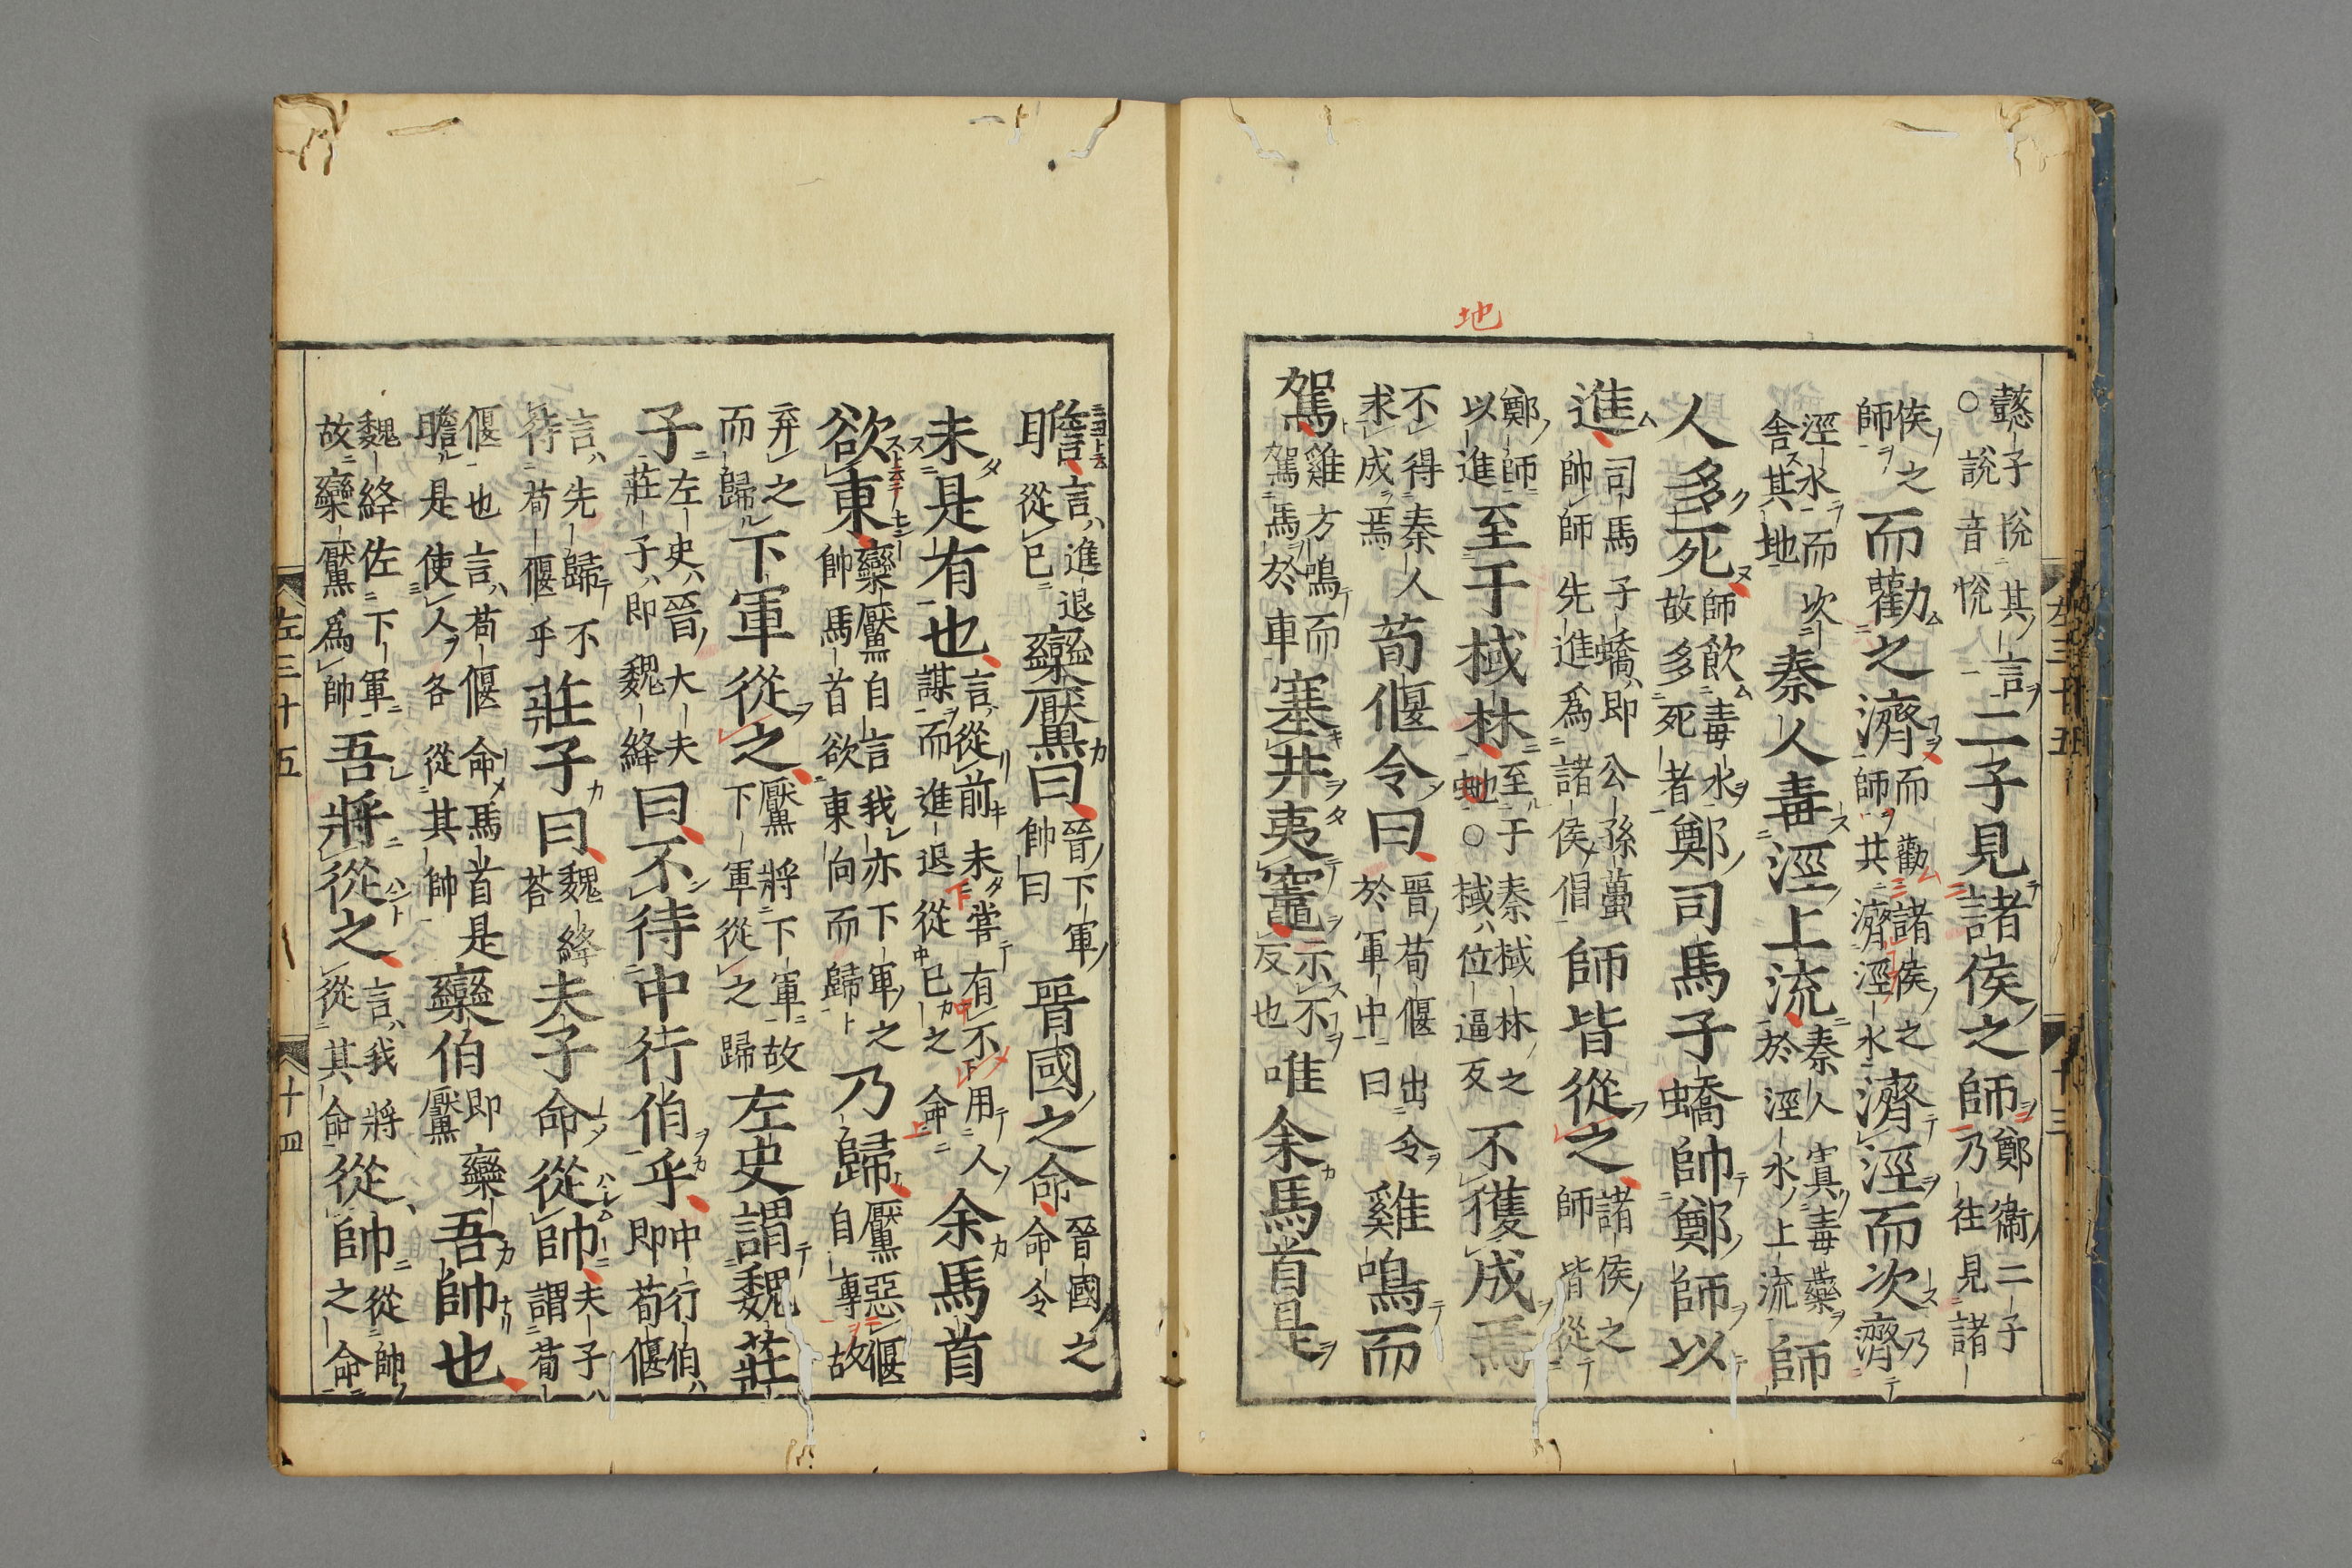 地
懿子悅其言○說音悅二子見諸侯之師鄭衛二子乃往見諸
侯之師而勸之濟而勸諸侯之師共濟涇水濟涇而次乃濟
涇水而次舍其地秦人毒涇上流秦人寘毒藥於涇水上流師
人多死師飲毒水故多死者鄭司馬子蟜帥鄭師以
進司馬子蟜即公孫蠆帥師先進爲諸侯倡師皆從之諸侯之師皆從
鄭師以進至于棫林至于秦棫林之地○棫位逼反不獲成焉
不得秦人求成焉荀偃令曰晉荀偃出令於軍中曰雞鳴而
駕雞方鳴而駕馬於車塞井夷竈示不反也唯余馬首是
瞻言進退從已欒黶曰晉下軍帥曰晉國之命晉國之命令
未是有也言從前未嘗有不用人謀而進退從已之命余馬首
欲東欒黶自言我亦下軍之帥馬首欲東向而歸乃歸黶惡偃自專故
弃之而歸下軍從之黶將下軍故下軍從之歸左史謂魏莊
子左史晉大夫莊子即魏絳曰不待中行伯乎中行伯即荀偃
言先歸不待荀偃乎莊子曰魏絳荅夫子命從帥夫子謂荀
偃也言荀偃命馬首是瞻是使人各從其帥欒伯即欒黶吾帥也
魏絳佐下軍故欒黶爲帥吾將從之言我將從其命從帥從帥之命
左三十五 十四